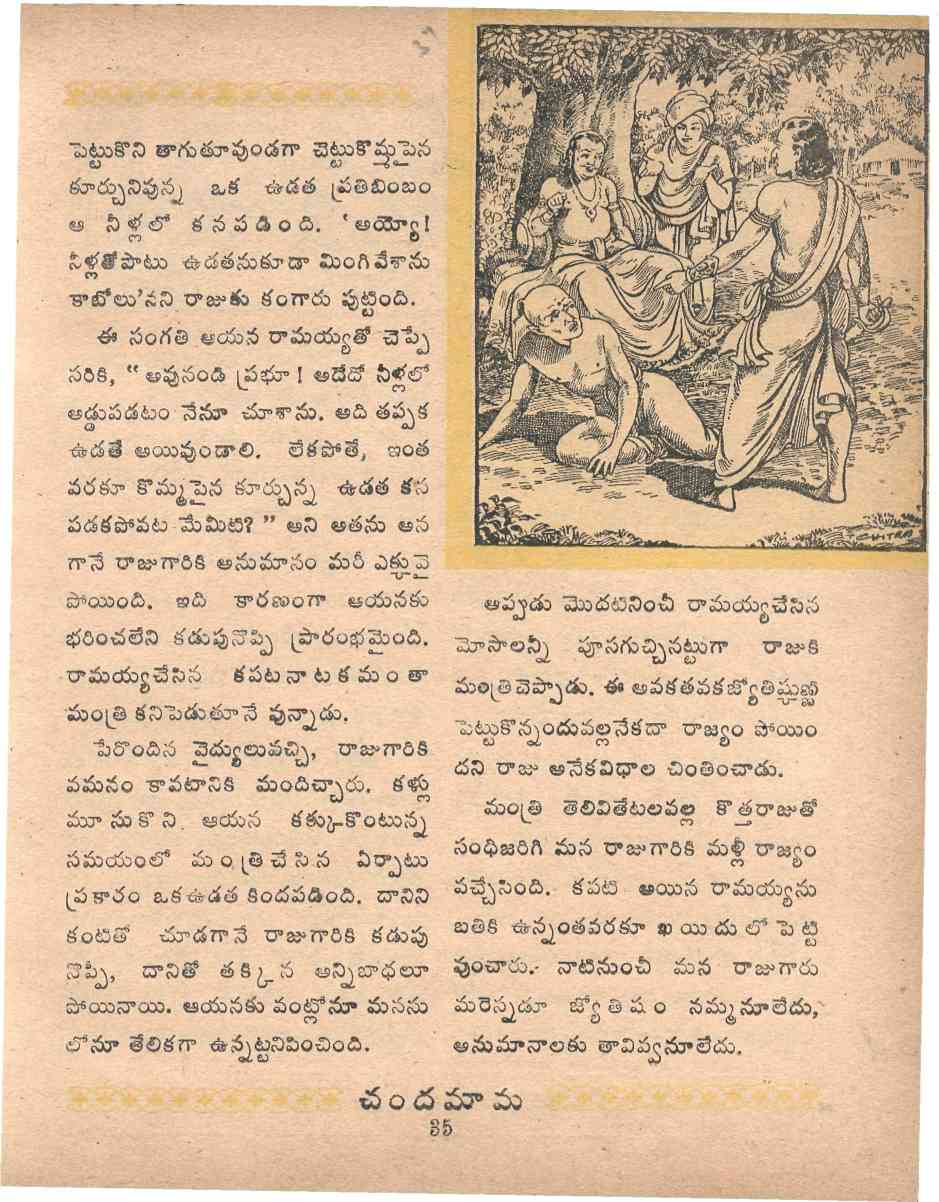 పెట్టుకొని తాగుతూవుండగా చెట్టుకొమ్మపైన
కూర్చునివున్న ఒక ఉడత ప్రతిబింబం
ఆ నీళ్లలో కనపడింది. ‘అయ్యో!
నీళ్లతోపాటు ఉడతనుకూడా మింగివేశాను
కాబోలు’నని రాజుకు కంగారు పుట్టింది.
ఈ సంగతి ఆయన రామయ్యతో చెప్పే
సరికి, “అవునండి ప్రభూ! అదేదో నీళ్లలో
అడ్డుపడటం నేనూ చూశాను. అది తప్పక
ఉడతే అయివుండాలి. లేకపోతే, ఇంత
వరకూ కొమ్మపైన కూర్చున్న ఉడత కన
పడకపోవట మేమిటి?” అని అతను అన
గానే రాజుగారికి అనుమానం మరీ ఎక్కువై
పోయింది. ఇది కారణంగా ఆయనకు
భరించలేని కడుపునొప్పి ప్రారంభమైంది.
రామయ్యచేసిన కపటనాటకమంతా
మంత్రి కనిపెడుతూనే వున్నాడు.
పేరొందిన వైద్యులువచ్చి, రాజుగారికి
వమనం కావటానికి మందిచ్చారు. కళ్లు
మూసుకొని ఆయన కక్కుకొంటున్న
సమయంలో మంత్రిచేసిన ఏర్పాటు
ప్రకారం ఒకఉడత కిందపడింది. దానిని
కంటితో చూడగానే రాజుగారికి కడుపు
నొప్పి, దానితో తక్కిన అన్నిబాధలూ
పోయినాయి. ఆయనకు వంట్లోనూ మనసు
లోనూ తేలికగా ఉన్నట్టనిపించింది.
CHITRA
అప్పుడు మొదటినించీ రామయ్యచేసిన
మోసాలన్నీ పూసగుచ్చినట్టుగా రాజుకి
మంత్రిచెప్పాడు. ఈ అవకతవకజ్యోతిష్కుణ్ణి
పెట్టుకొన్నందువల్లనేకదా రాజ్యం పోయిం
దని రాజు అనేకవిధాల చింతించాడు.
మంత్రి తెలివితేటలవల్ల కొత్తరాజుతో
సంధిజరిగి మన రాజుగారికి మళ్లీ రాజ్యం
వచ్చేసింది. కపటి అయిన రామయ్యను
బతికి ఉన్నంతవరకూ ఖయిదులో పెట్టి
వుంచారు. నాటినుంచీ మన రాజుగారు
మరెన్నడూ జ్యోతిషం నమ్మనూలేదు,
అనుమానాలకు తావివ్వనూలేదు.
చందమామ
35